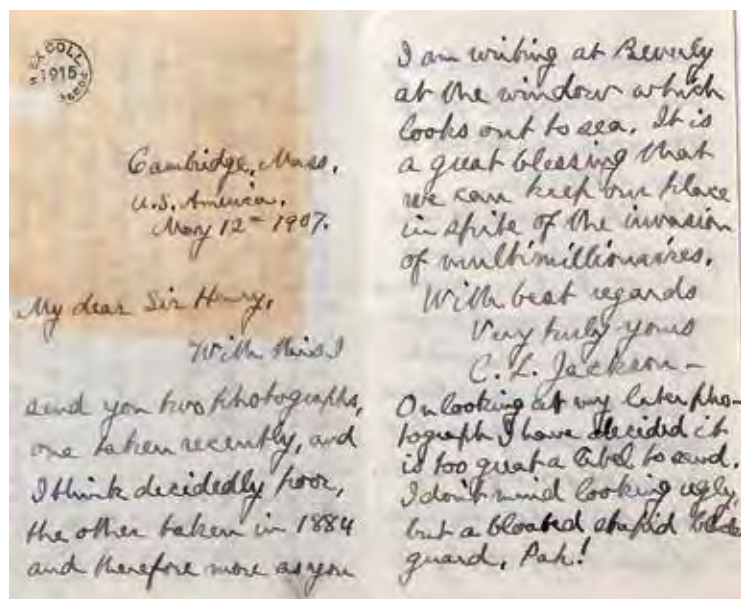 COLL
1915
Cambridge, Mass.
U.S. America.
May 12th 1907.
My dear Sir Henry,
With this I
send you two photographs,
one taken recently, and
I think decidedly poor,
the other taken in 1884
and therefore more as you
I am writing at Beverly
at the window which
looks out to sea. It is
a great blessing that
we can keep our place
in spite of the invasion
of multimillionaires.
With best regards
Very truly yours
C. L. Jackson—
On looking at my later pho-
tograph I have decided it
is too great a libel to send.
I don't mind looking ugly,
but a bloated stupid black
guard, Pah!